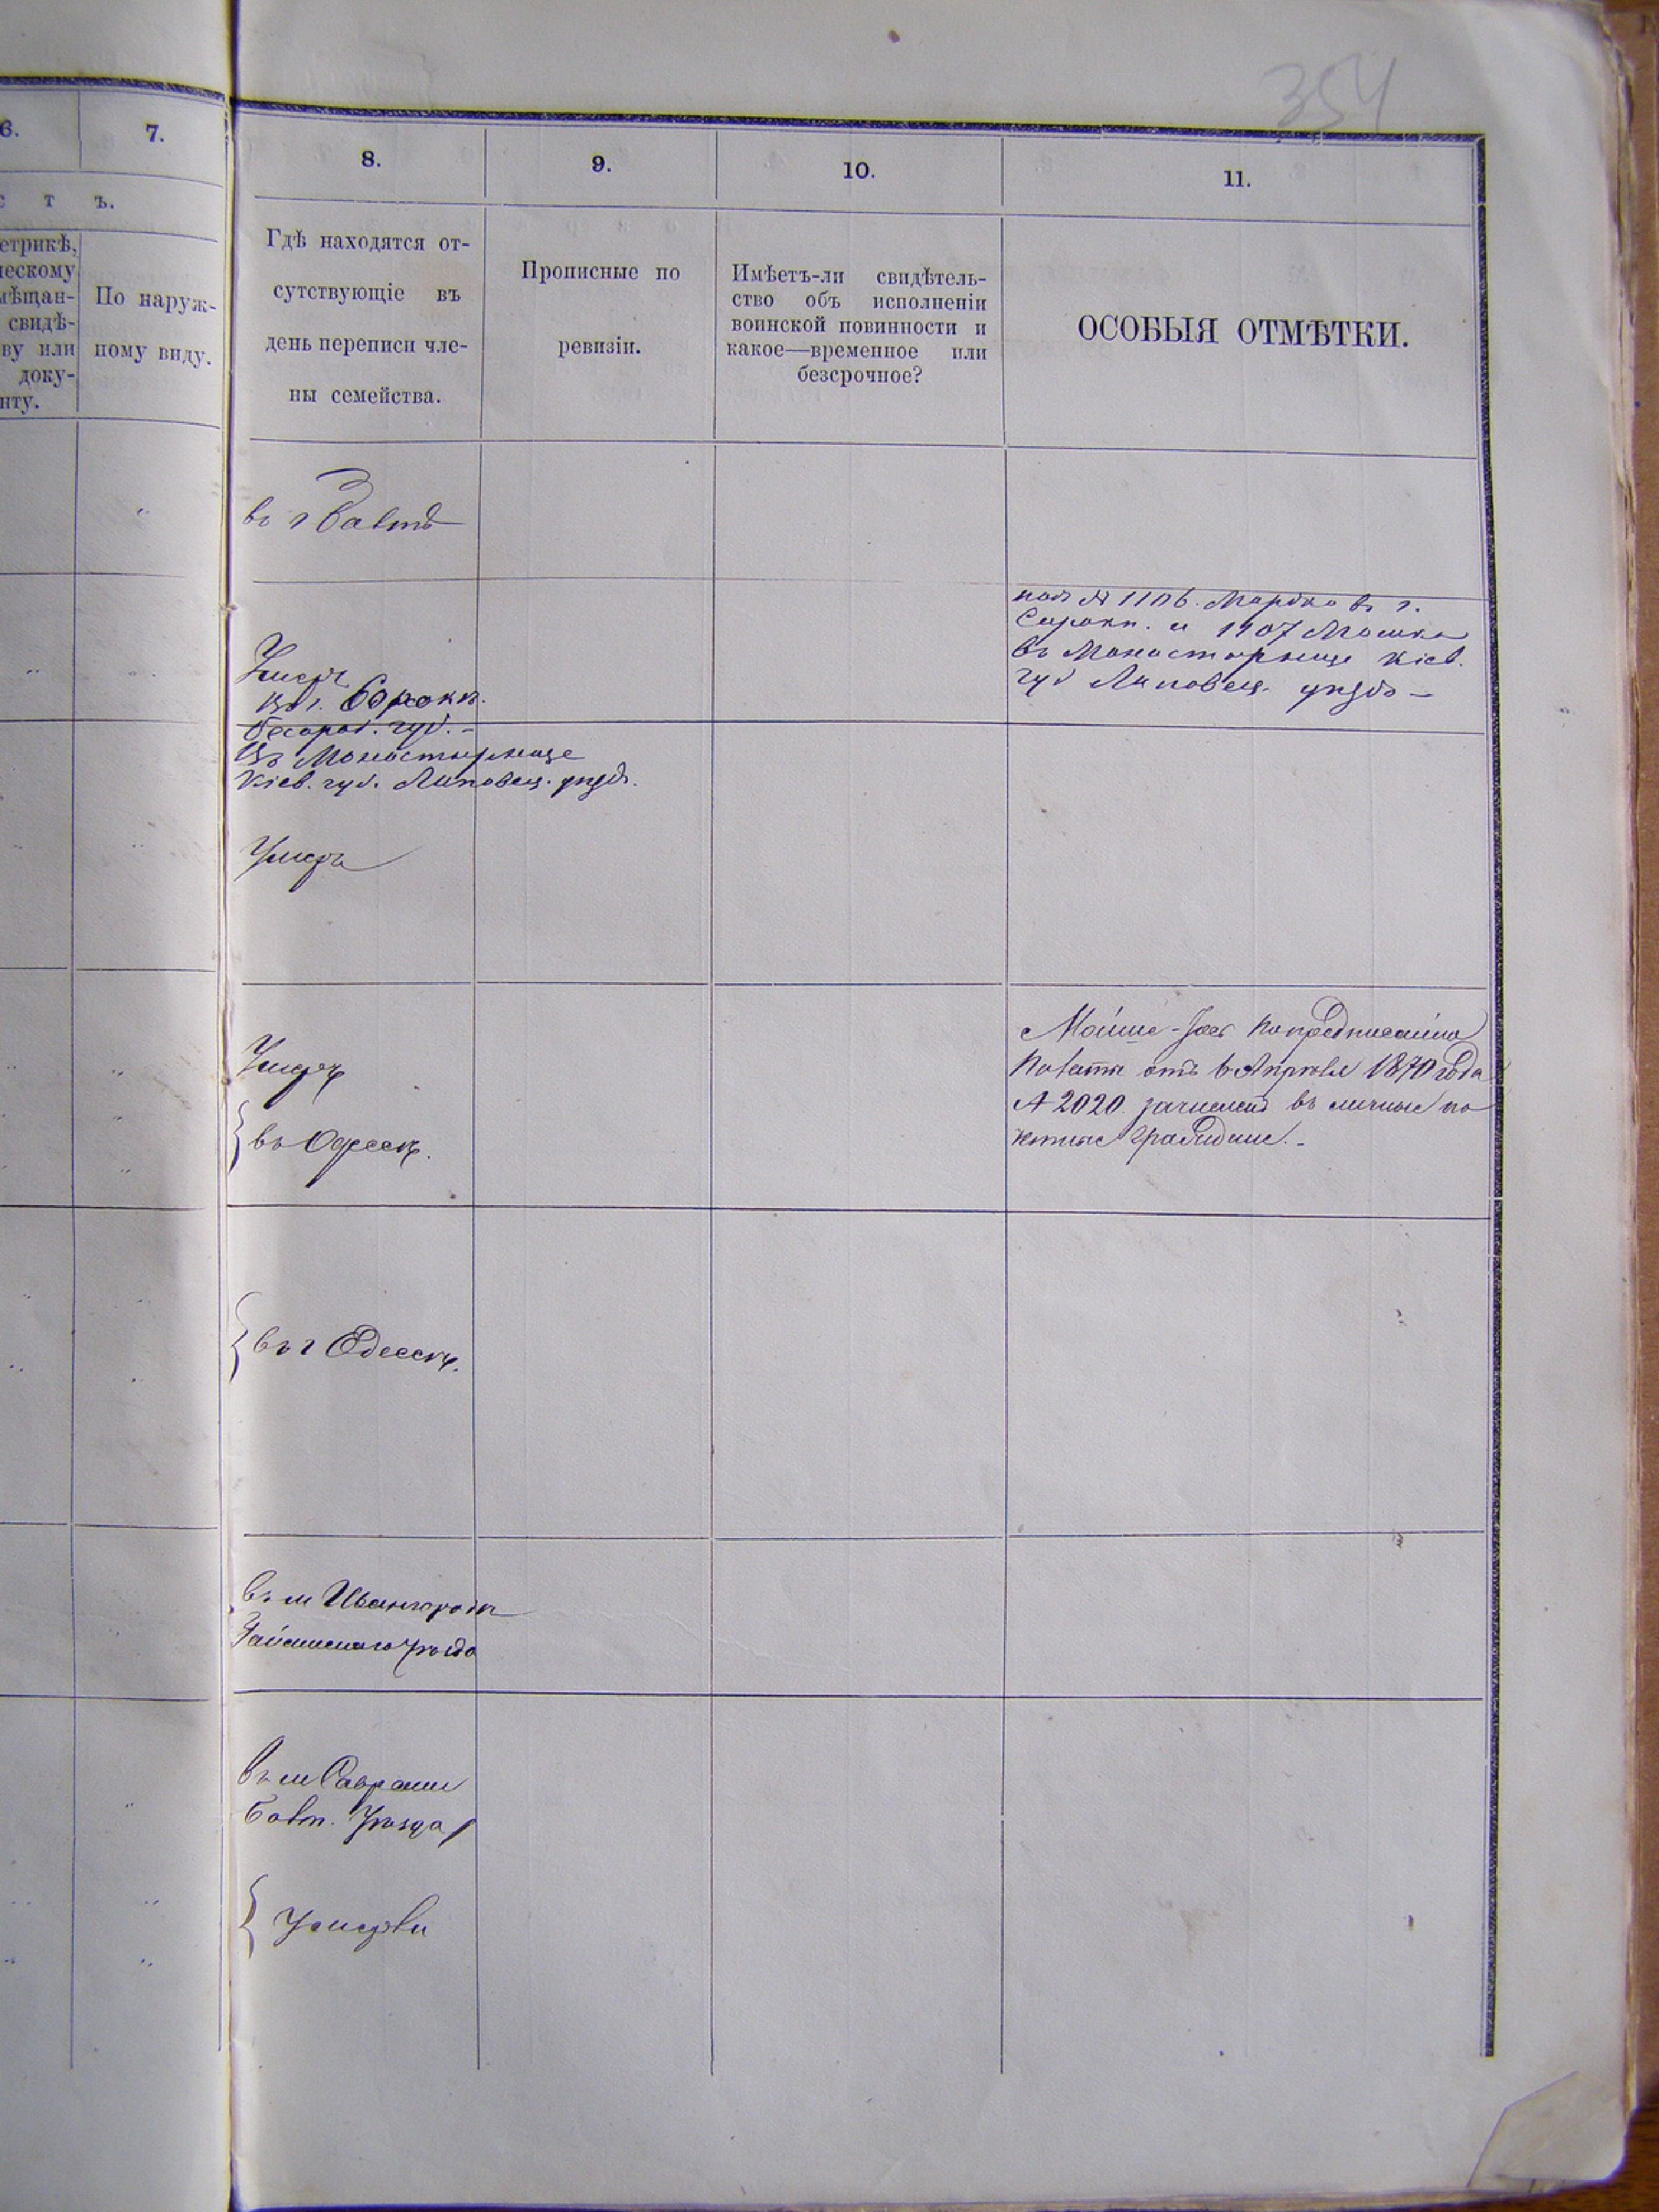 354
6.
7.
8.
9.
10.
11.
с т ъ.
етрикѣ,
ческому
мѣщан-
свидѣ-
ву или
доку-
нту.
По наруж-
ному виду.
Гдѣ находятся от-
сутствующіе въ
день переписи чле-
ны семейства.
Прописные по
ревизіи.
Имѣетъ-ли свидѣтель-
ство объ исполненіи
воинской повинности и
какое—временное или
безсрочное?
ОСОБЫЯ ОТМѢТКИ.
въ г Балтѣ
подъ № 1106. Мордко въ г.
Сорокѣ. и 1107 Мошко
въ Монастырище Кіев.
губ Липовец. уѣздѣ —
Умеръ
Въ г. Сорокѣ.
Бесараб. губ. –
Въ Монастырище
Кіев. губ. Липовец. уѣздѣ.
Умеръ
Умеръ
въ Одессѣ.
Мойше - по предписанію
Палаты отъ 6 Апрѣля 1870 года
№ 2020 зачисленъ въ личные по
четные граждане. -
въ г Одессѣ.
въ м Ивангородѣ
Гайсинскаго уѣзда
въ м Саврани
Балт. Уѣзда
Умерли